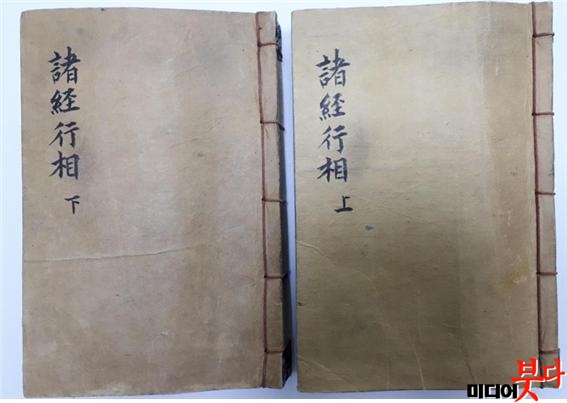 諸経行相
上
諸経行相
下
미디어붓다